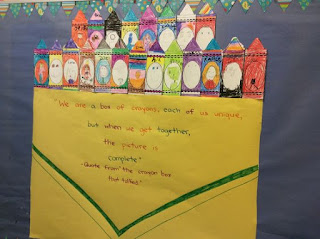 "We are a box of crayons, each of us unique,
but when we get together,
the picture is
complete"
-Quote from "the crayon box
that talked"